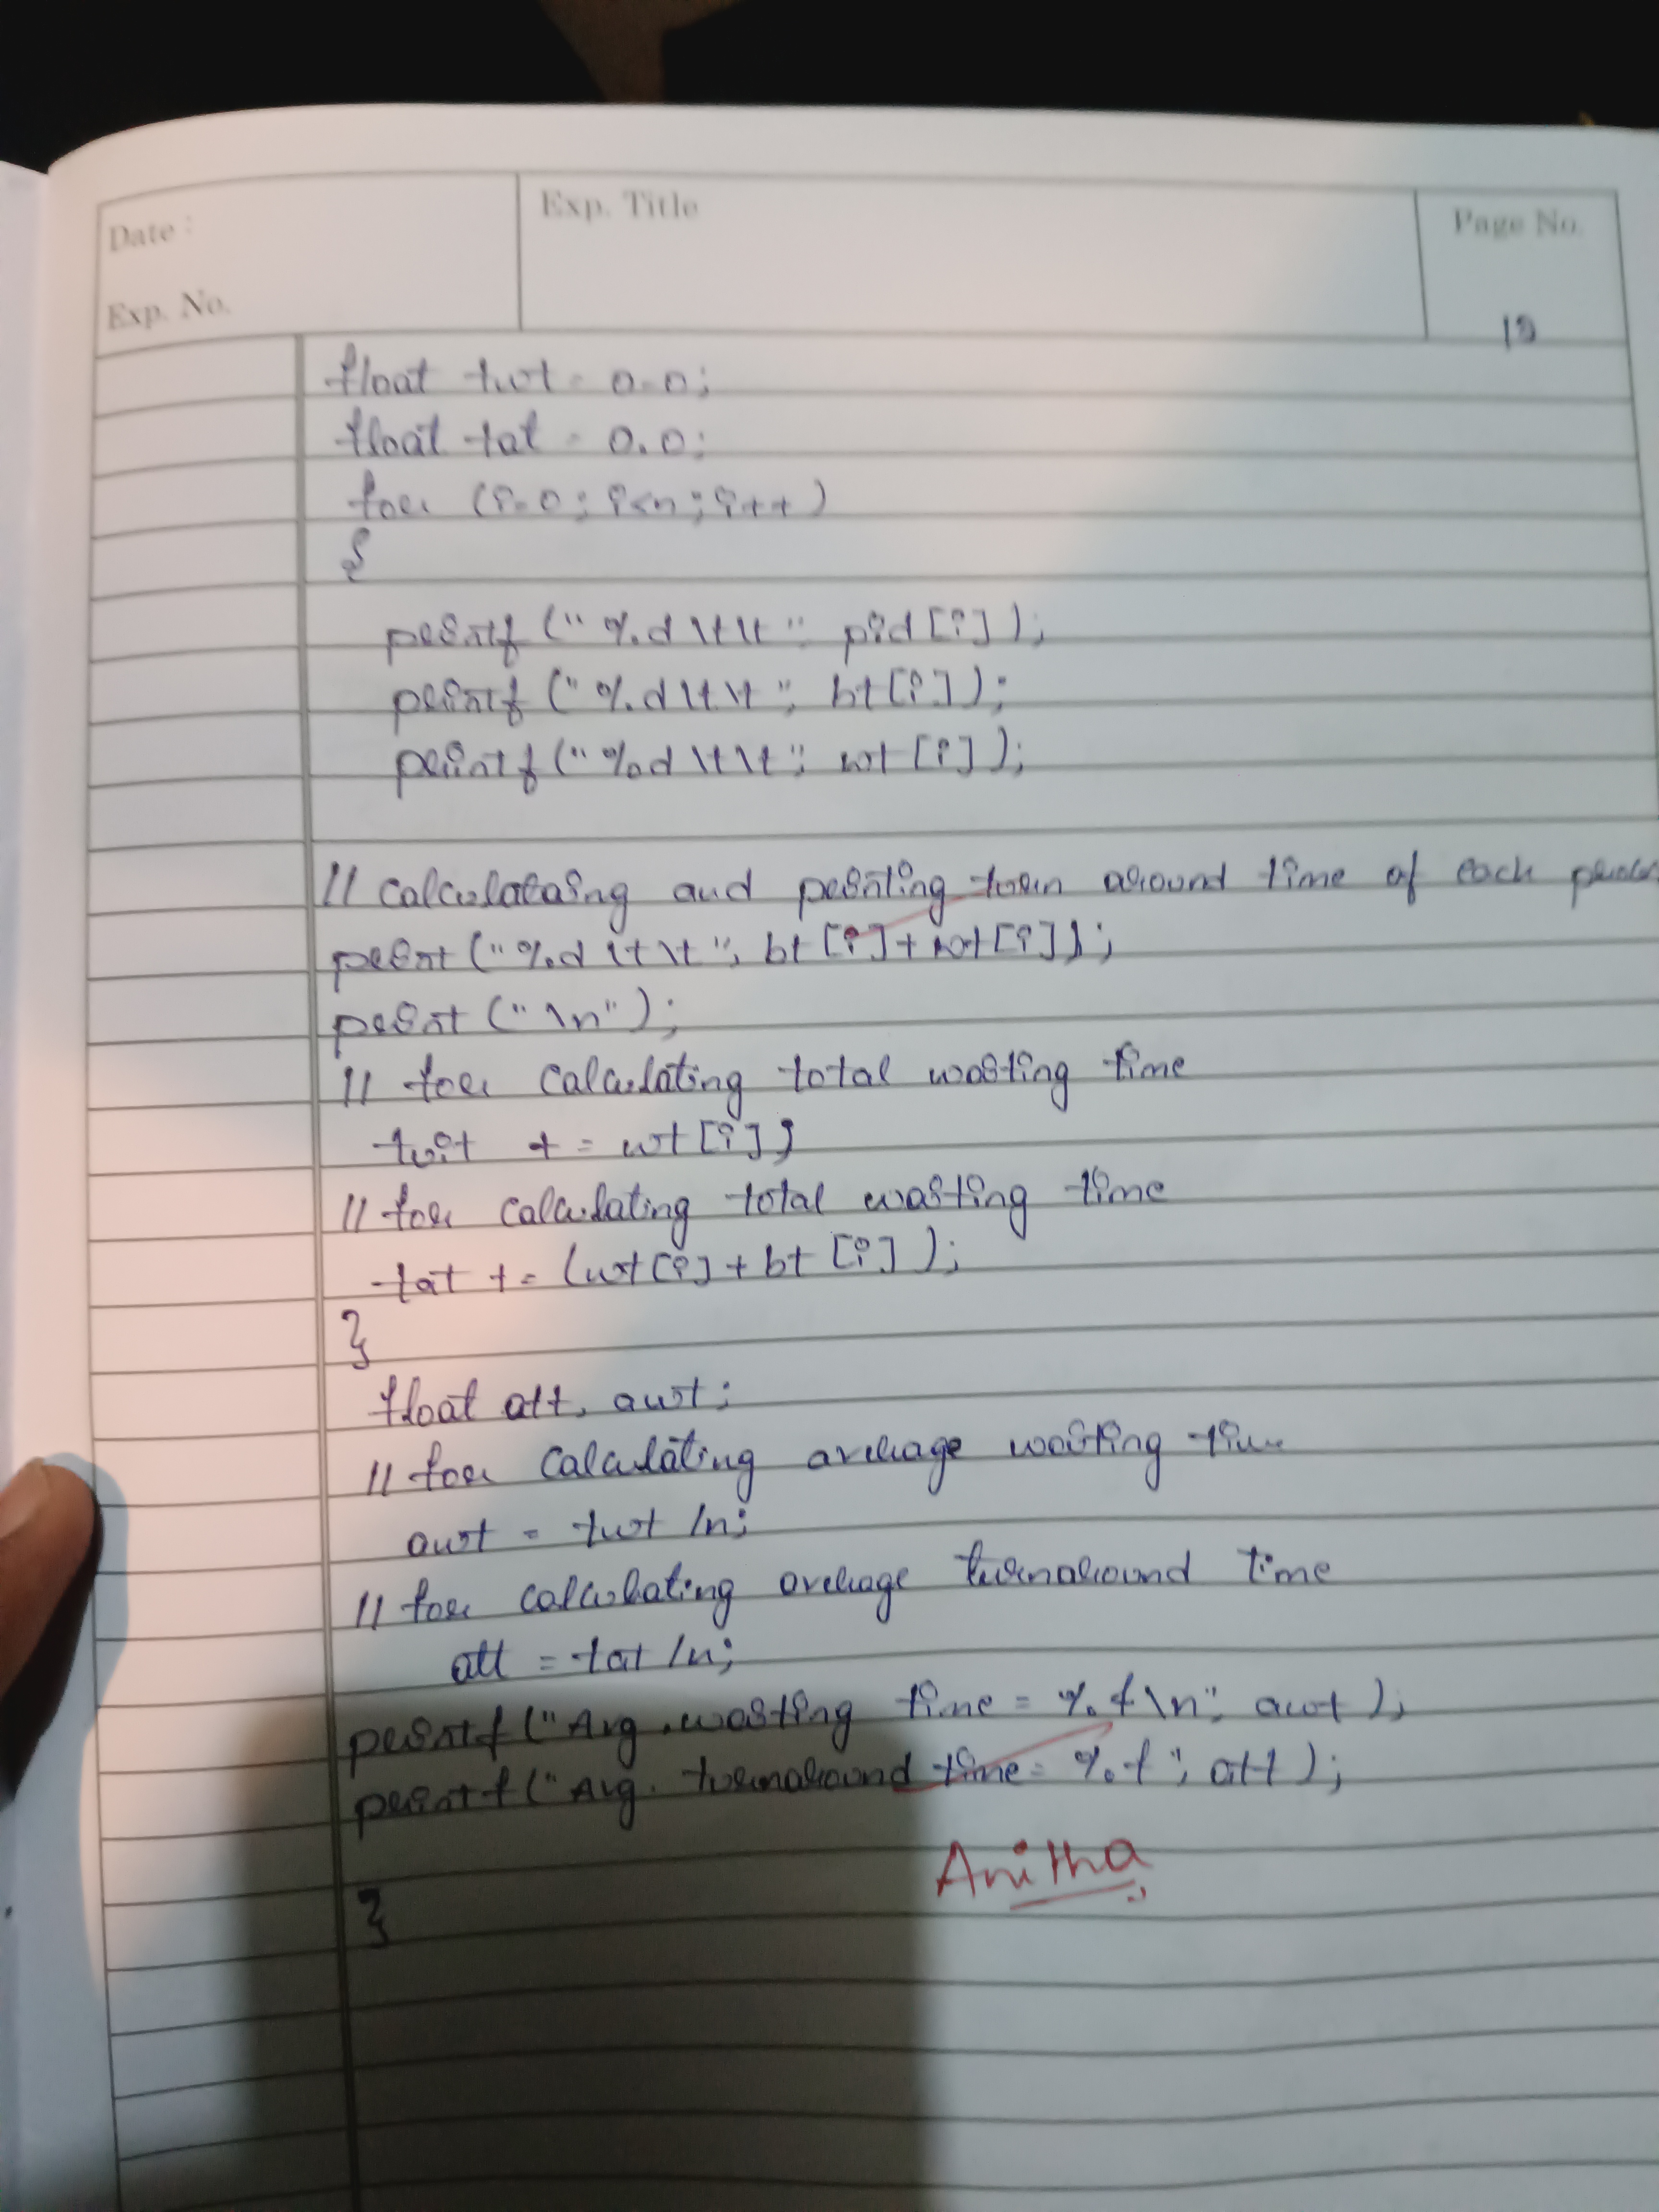 Date :
Exp. Title
Page No.
Exp. No.
float twt = 0.0;
float tat = 0.0;
for (i=0; i<n; i++)
{
printf ("%d\t\t", pid[i]);
printf ("%d\t\t", bt[i]);
printf ("%d\t\t", wt[i]);
// calculataing and printing turn around time of each
print ("%d\t\t", bt[i]+wt[i]);
print ("\n");
// for calculating total waiting time
twit += wt[i];
// for calculating total waiting time
tat += (wt[i]+bt[i]);
}
float att, awt;
// for calculating average waiting
awt = twt/n;
// for calculating average turnaround time
att = tat/n;
printf ("Avg. waiting time = %f\n", awt);
printf ("Avg. turnaround time = %f", att);
Anitha
}